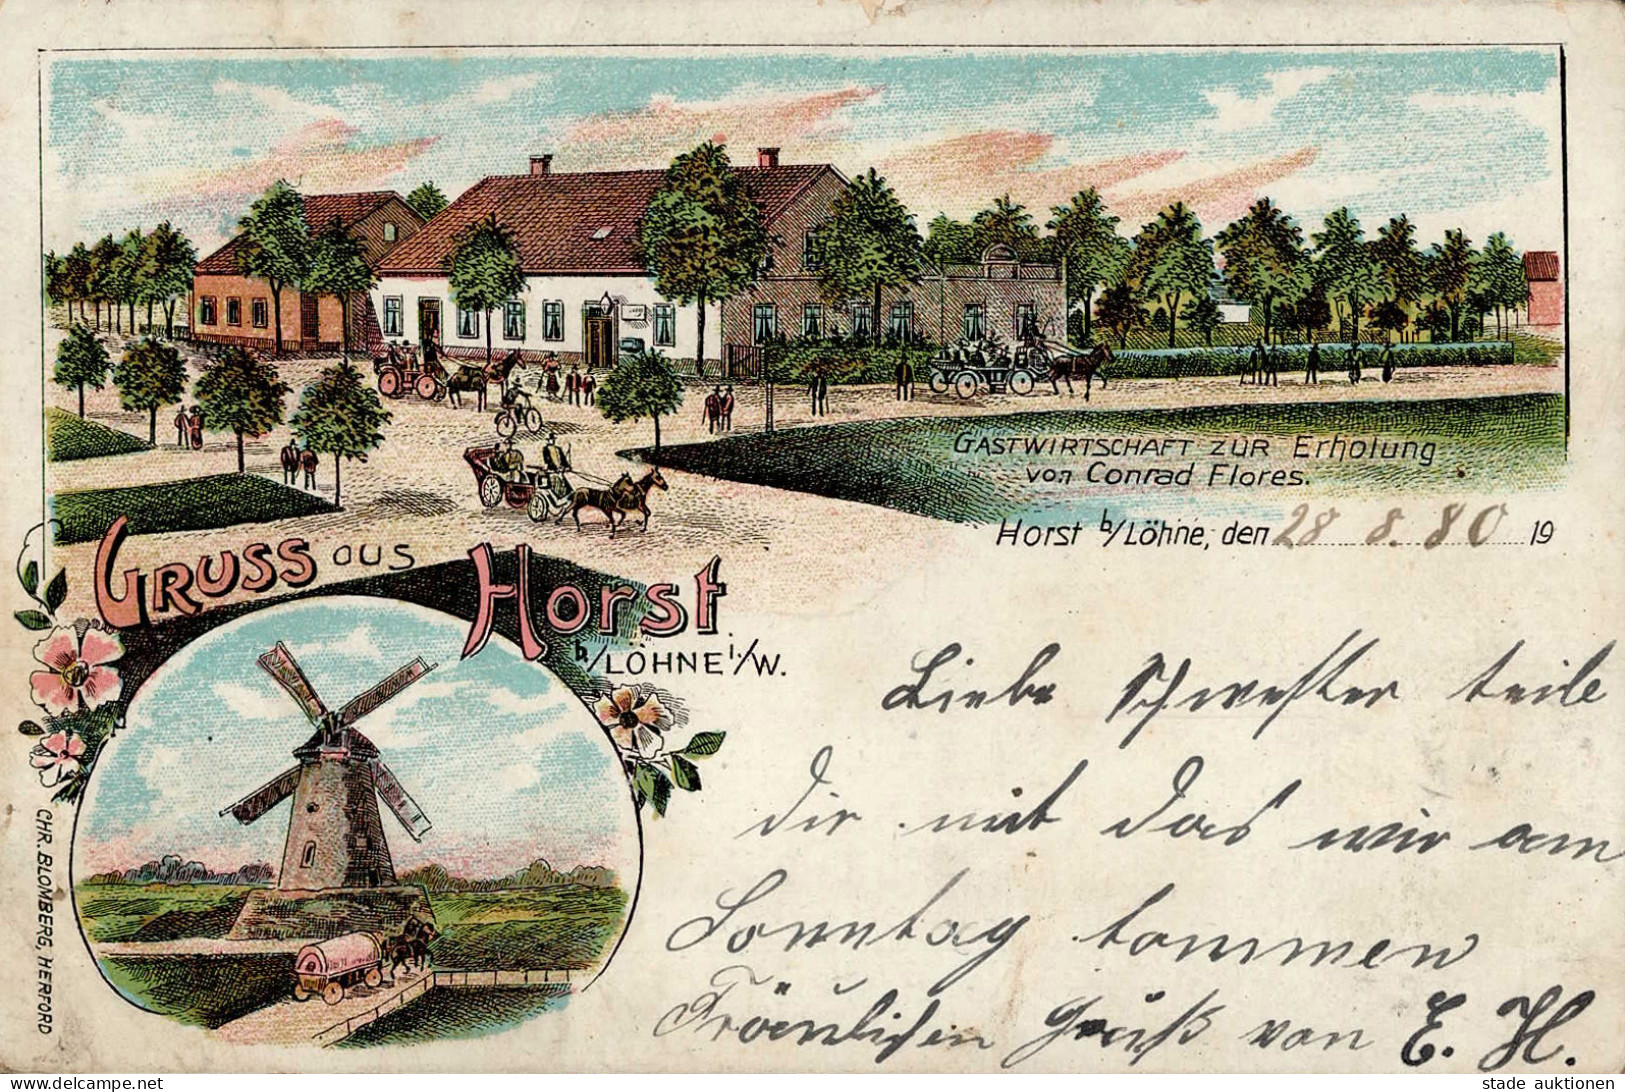 GASTWIRTSCHAFT ZUR Erholung
von Conrad Flores.
Horst b/Löhne, den 28 8. 80 19
GRUSS aus Horst
b./LÖHNE i./W.
Liebe Schwester teile
dir mit das wir am
Sonntag kommen
Fräulichen Gruß von E. H.
CHR. BLOMBERG, HERFORD
delcampe.net
stade auktionen